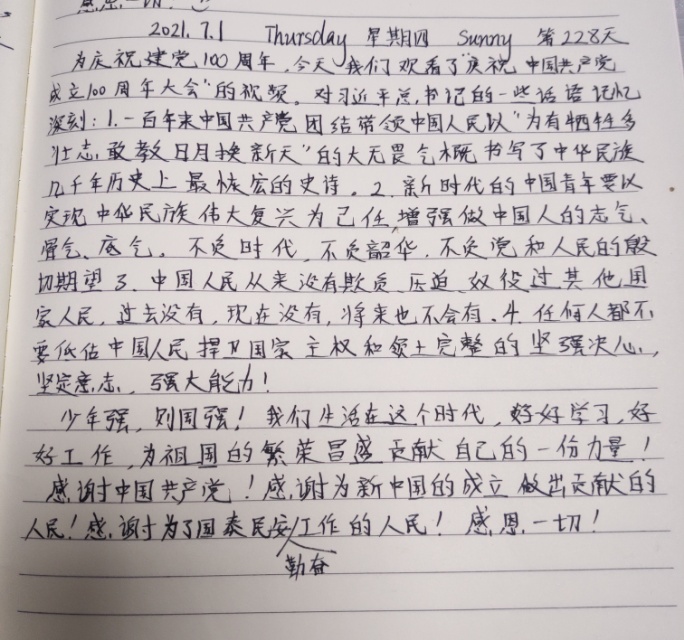 感恩一切!
2021.7.1 Thursday 星期四 Sunny 第228天
为庆祝建党100周年,今天我们观看了"庆祝中国共产党
成立100周年大会"的视频。对习近平总书记的一些话语记忆
深刻:1.一百年来中国共产党团结带领中国人民以"为有牺牲多
壮志,敢教日月换新天"的大无畏气概书写了中华民族
几千年历史上最恢宏的史诗。2.新时代的中国青年要以
实现中华民族伟大复兴为己任,增强做中国人的志气、
骨气、底气。不负时代,不负韶华,不负党和人民的殷
切期望3.中国人民从来没有欺负、压迫、奴役过其他国
家人民,过去没有,现在没有,将来也不会有.4.任何人都不
要低估中国人民捍卫国家主权和领土完整的坚强决心,
坚定意志,强大能力!
少年强,则国强!我们生活在这个时代,好好学习,好
好工作,为祖国的繁荣昌盛贡献自己的一份力量!
感谢中国共产党!感谢为新中国的成立做出贡献的
人民!感谢为了国泰民安工作的人民!感恩一切!
勤奋